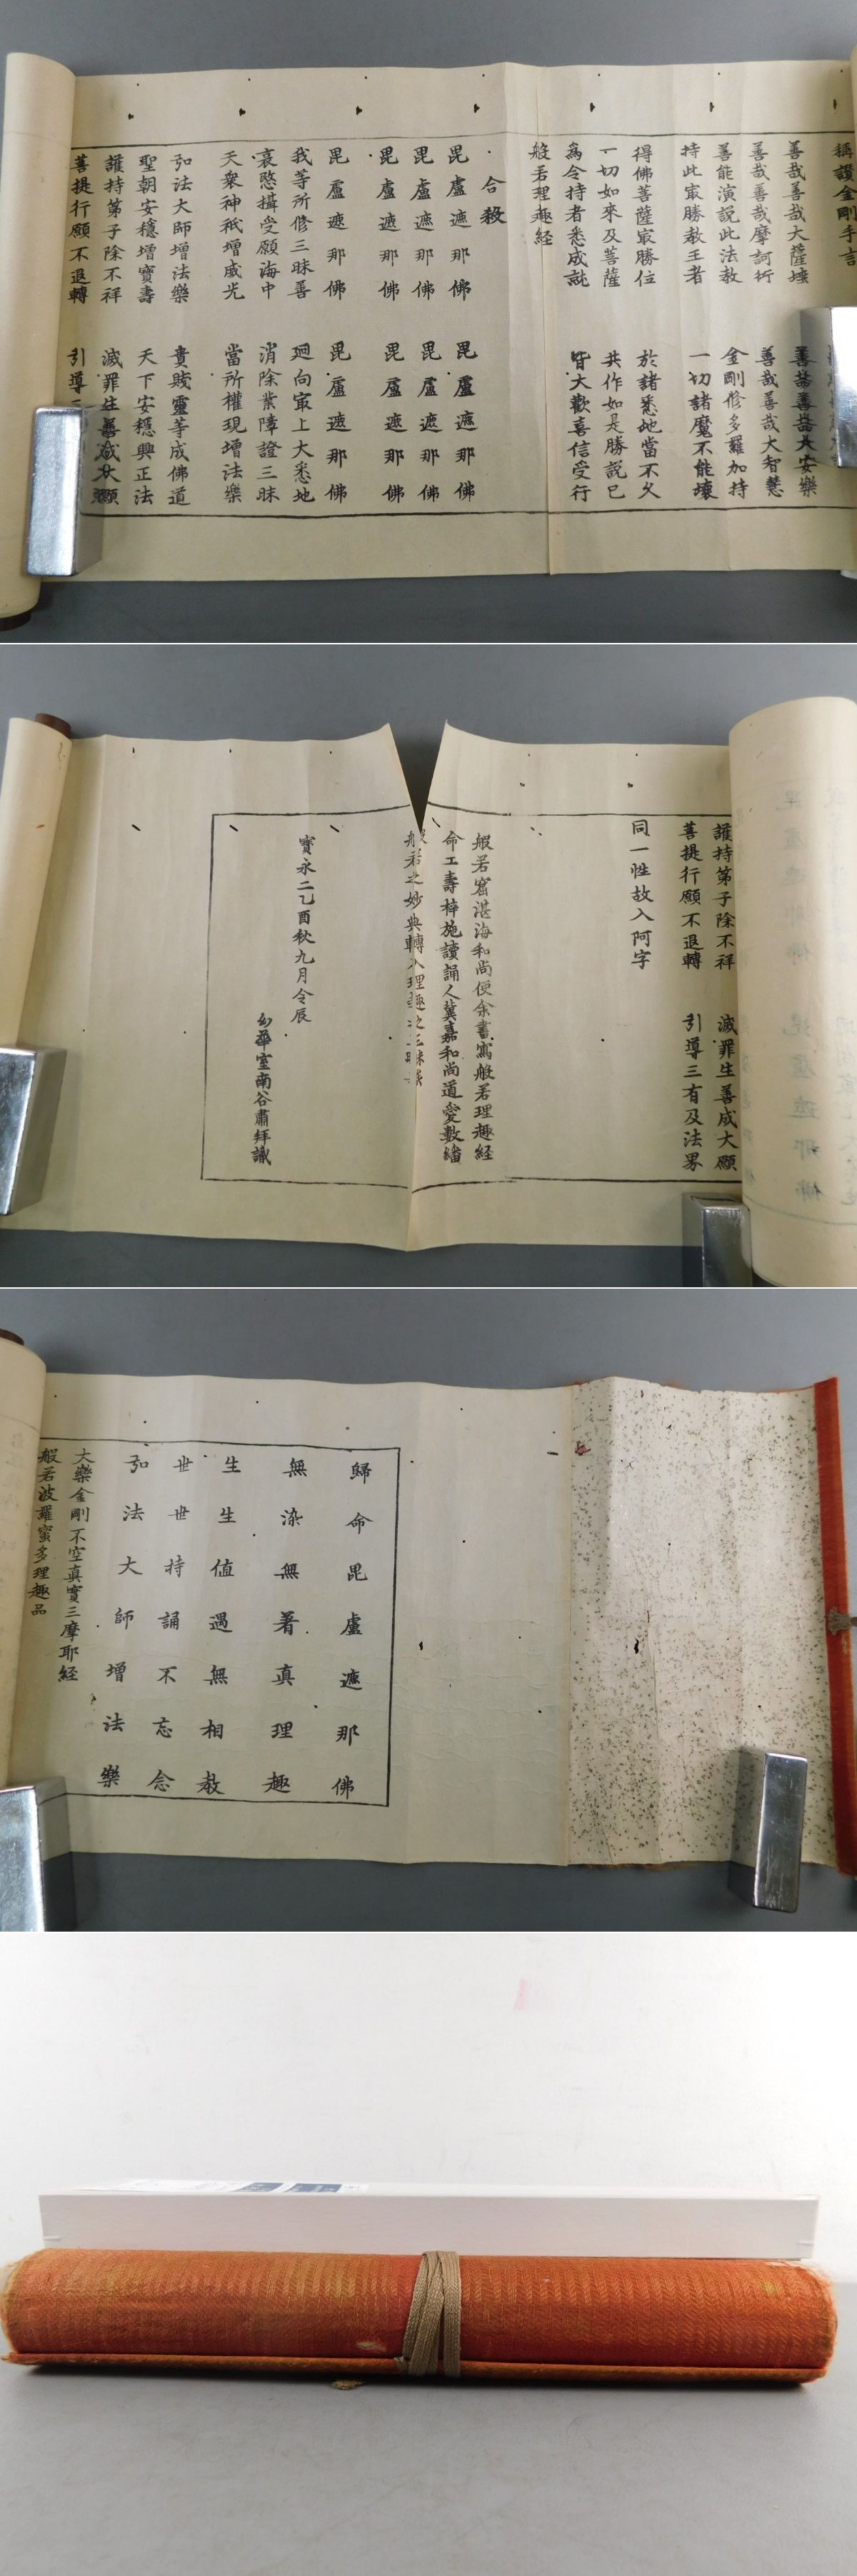 稱讚金剛手言
善哉善哉大薩埵
善哉善哉大安樂
善哉善哉摩訶衍
善哉善哉大智慧
善能演說此法教
金剛修多羅加持
持此㝡勝教王者
一切諸魔不能壞
得佛菩薩㝡勝位
於諸悉地當不久
一切如來及菩薩
共作如是勝説已
為令持者悉成就
皆大歡喜信受行
般若理趣経
合殺
毘盧遮那佛
毘盧遮那佛
毘盧遮那佛
毘盧遮那佛
毘盧遮那佛
毘盧遮那佛
毘盧遮那佛
毘盧遮那佛
我等所修三昧善
廻向㝡上大悉地
哀愍攝受願海中
消除業障證三昧
天衆神祇增威光
當所權現增法樂
弘法大師增法樂
貴賎靈等成佛道
聖朝安穩增寶壽
天下安穩興正法
護持第子除不祥
滅罪生善成大願
菩提行願不退轉
引導
護持第子除不祥
滅罪生善成大願
菩提行願不退轉
引導三有及法界
同一性故入阿字
般若窟湛海和尚使余書寫般若理趣経
命工壽梓施讀誦人冀嘉和尚道愛數繙
般若之妙典轉入理趣之三昧
寶永二乙酉秋九月令辰
幻華室南谷肅拜識
歸命毘盧遮那佛
無染無著真理趣
生生值遇無相教
世世持誦不忘念
弘法大師增法樂
大樂金剛不空真實三摩耶経
般若波羅蜜多理趣品